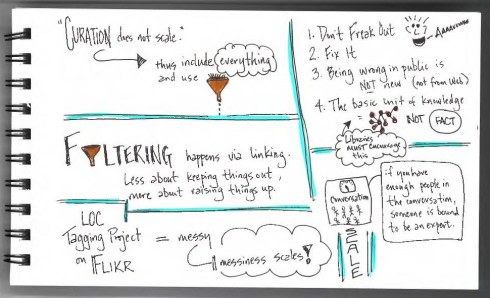 "CURATION does not scale."
thus include everything
and use
FILTERING happens via linking.
Less about keeping things out,
more about raising things up.
LOC
Tagging Project
on FLIKR
= messy
messiness scales!
1. Don't Freak Out
2. Fix It
3. Being wrong in public is
NOT new (not from Web)
4. The basic unit of knowledge
= NOT FACT
Libraries
MUST encourage
this
Conversation
SCALE
if you have
enough people in
the conversation,
someone is bound
to be an expert.